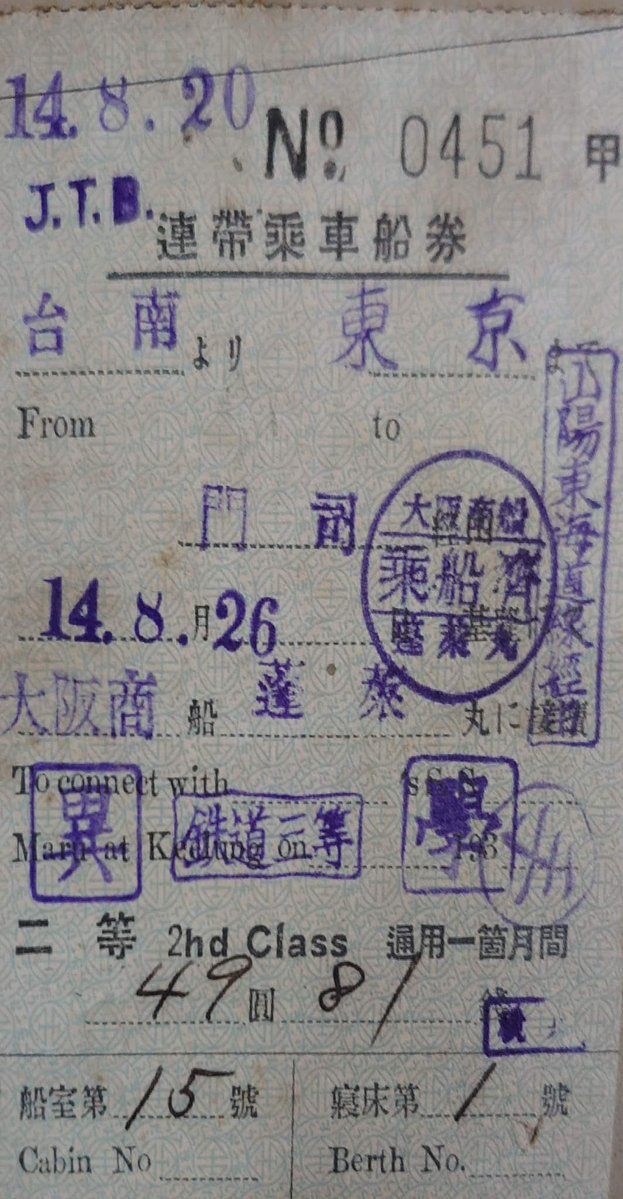 14.8.20
No 0451 甲
J.T.B.
連帶乘車船券
台南より 東京ま
From to
門司
大阪商船
乘船濟
蓬萊丸
山陽東海道線經由
14.8.月26
大阪商船 蓬萊丸に接續
To connect with 's S.S.
Maru at Keelung on 193
異
鉄道三等
學
二等 2hd Class 通用一箇月間
49圓 81錢
船室第15號 寢床第1號
Cabin No Berth No.